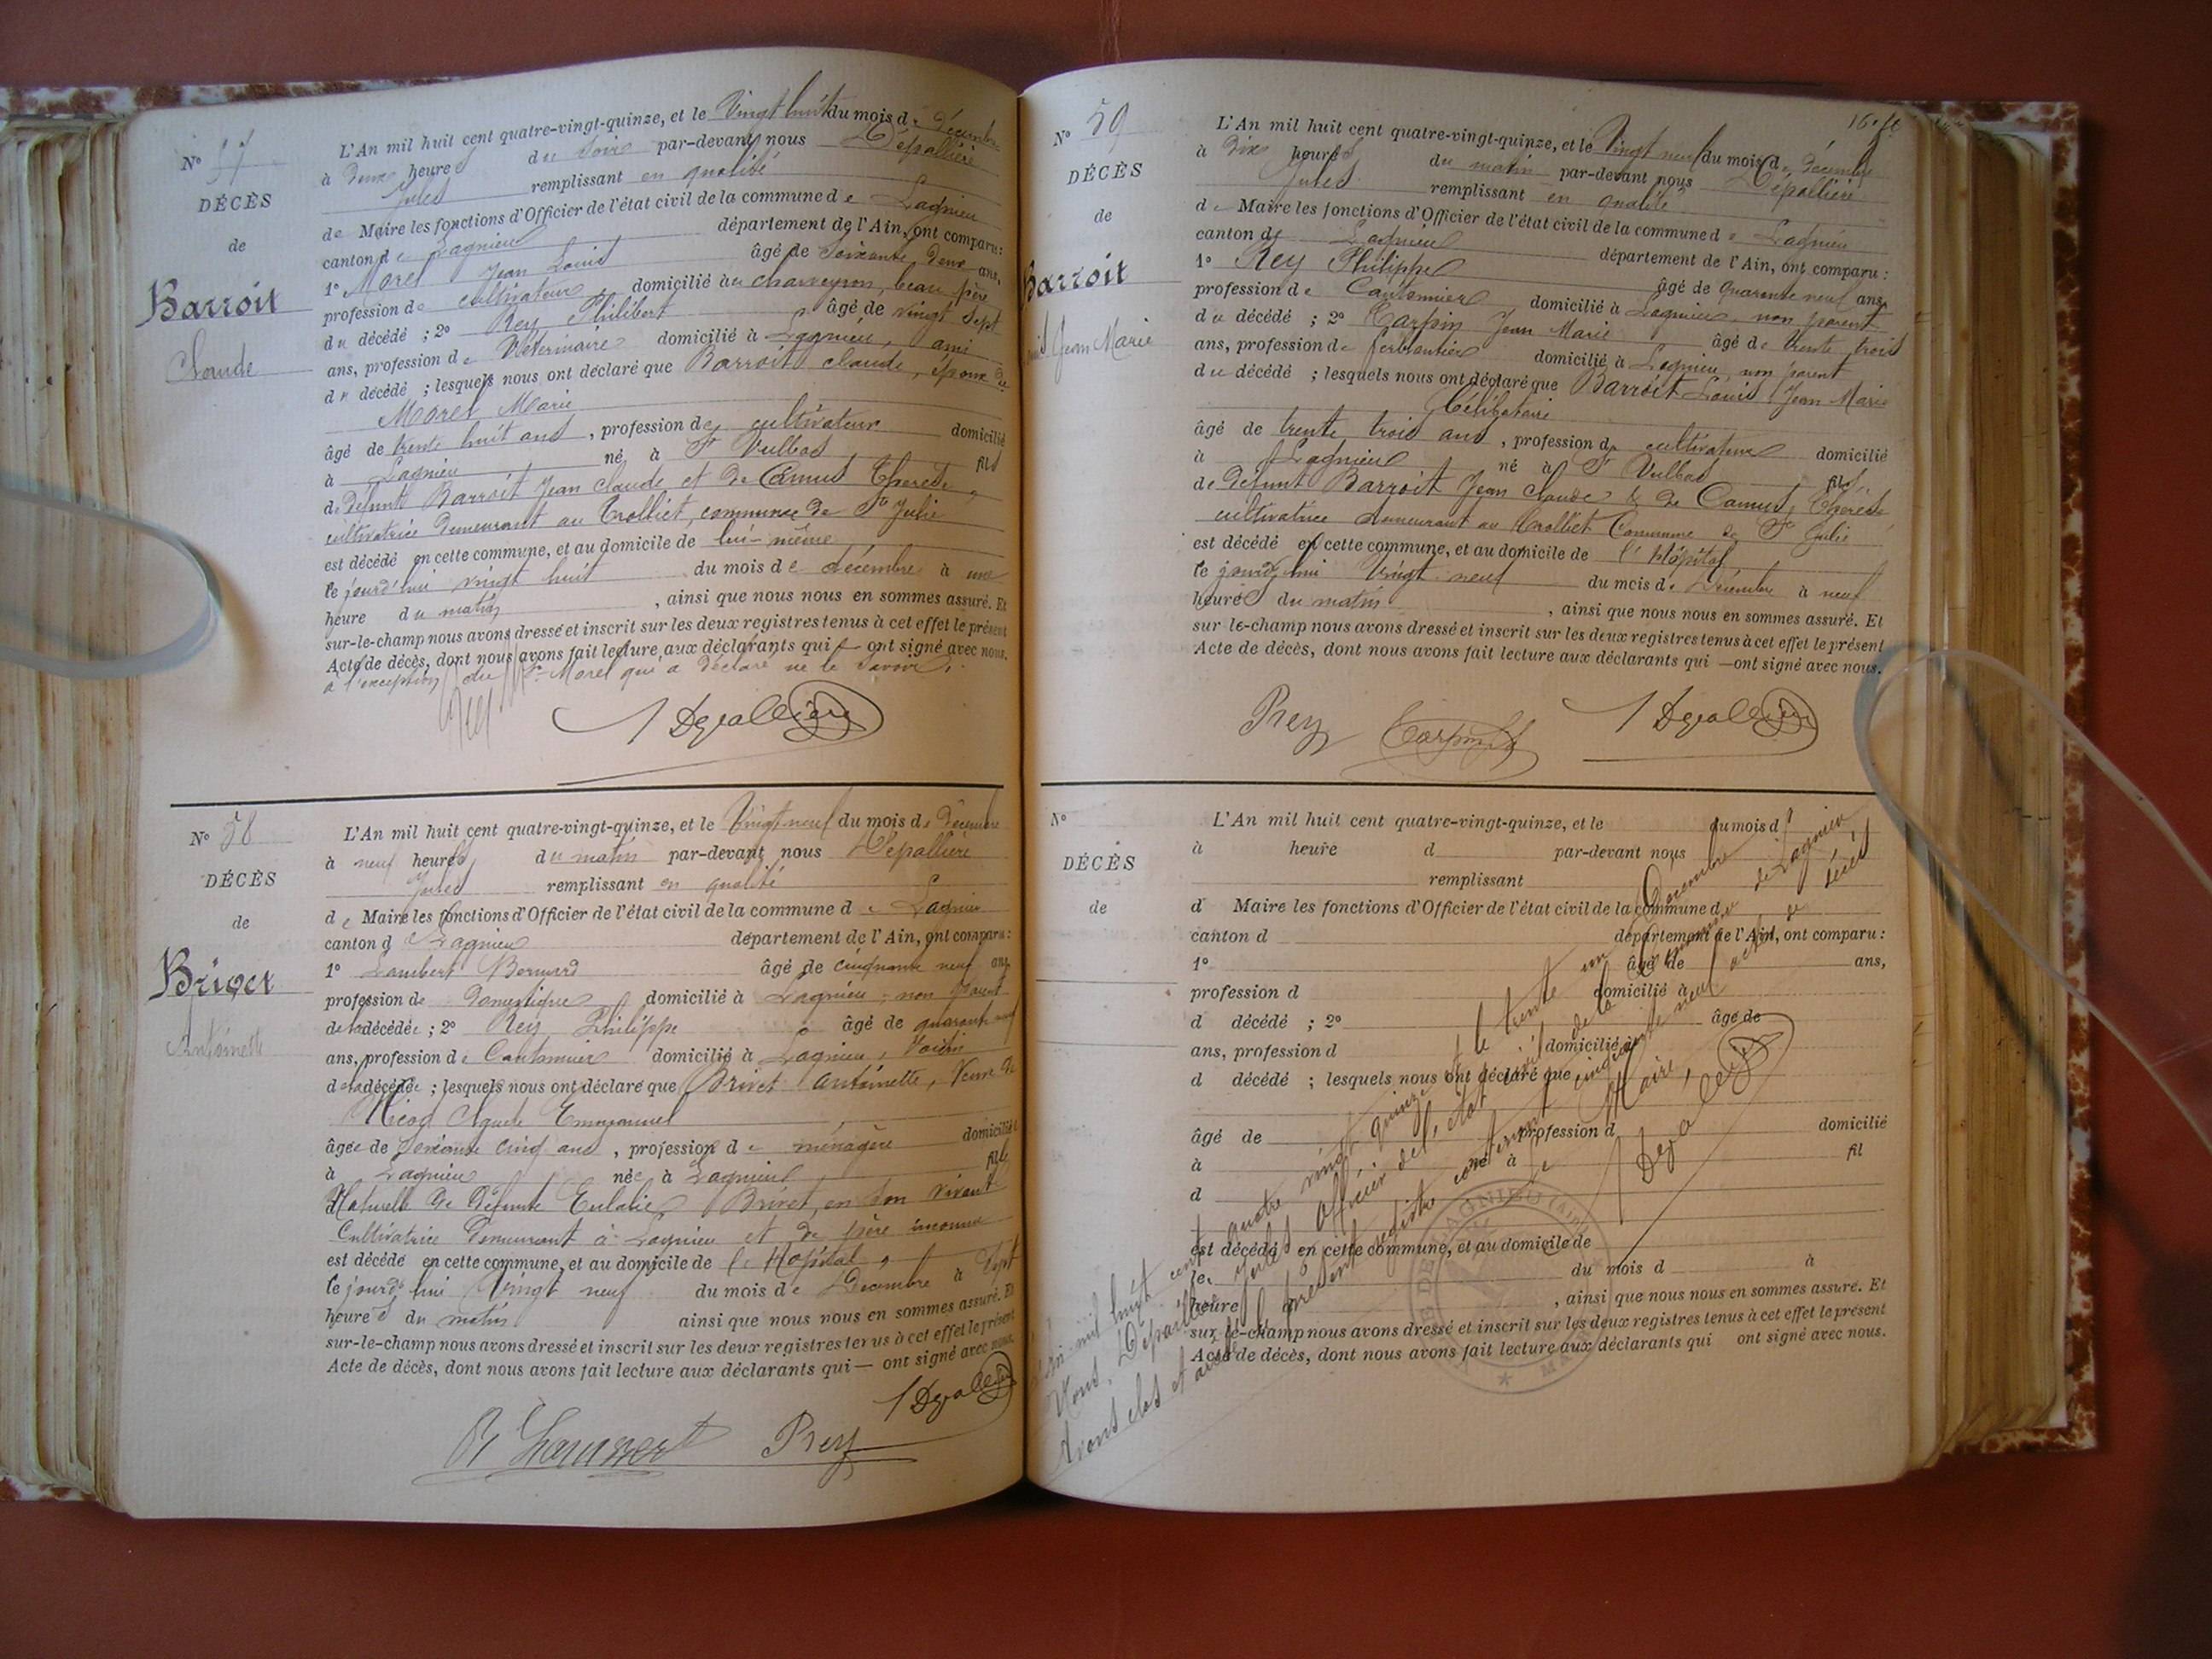 N° 57
DÉCÈS
de
Barroit
Claude
L'An mil huit cent quatre-vingt-quinze, et le Vingt huit du mois de décembre
à deux heures du soir par-devant nous Dépallière
Jules remplissant en qualité
de Maire les fonctions d'Officier de l'état civil de la commune de Lagnieu
canton de Lagnieu département de l'Ain, ont comparu :
1° Morel Jean Louis âgé de soixante deux ans,
profession de cultivateur domicilié au charveyron, beau père
du décédé ; 2° Rey Philibert âgé de vingt sept
ans, profession de Vétérinaire domicilié à Lagnieu, ami
du décédé ; lesquels nous ont déclaré que Barroit claude, époux de
Morel Marie
âgé de trente huit ans, profession de cultivateur domicilié
à Lagnieu né à St Vulbas fils
de défunt Barroit Jean claude et de Camus Therese,
cultivatrice demeurant au Trolliet, commune de Ste Julie
est décédé en cette commune, et au domicile de lui-même
le jourd'hui vingt huit du mois de décembre à une
heure du matin, ainsi que nous nous en sommes assuré. Et
sur-le-champ nous avons dressé et inscrit sur les deux registres tenus à cet effet le présent
Acte de décès, dont nous avons fait lecture aux déclarants qui ont signé avec nous,
à l'exception du Sr Morel qui a déclaré ne le savoir.
Rey J Dépallière
N° 58
DÉCÈS
de
Brivet
Antoinette
L'An mil huit cent quatre-vingt-quinze, et le Vingt neuf du mois de Décembre
à neuf heures du matin par-devant nous Dépallière
Jules remplissant en qualité
de Maire les fonctions d'Officier de l'état civil de la commune de Lagnieu
canton de Lagnieu département de l'Ain, ont comparu :
1° Lambert Bernard âgé de cinquante neuf ans,
profession de Domestique domicilié à Lagnieu, non parent
de la décédée ; 2° Rey Philippe âgé de quarante neuf
ans, profession de Cantonnier domicilié à Lagnieu, Voisin
de la décédée ; lesquels nous ont déclaré que Brivet Antoinette, Veuve de
Nicod Emmanuel
âgée de soixante cinq ans, profession de ménagère domiciliée
à Lagnieu née à Lagnieu fille
Naturelle de défunte Eulalie Brivet, en son vivant
Cultivatrice demeurant à Lagnieu et de père inconnu
est décédé en cette commune, et au domicile de l'Hôpital,
le jourd'hui Vingt neuf du mois de Décembre à sept
heures du matin ainsi que nous nous en sommes assuré. Et
sur-le-champ nous avons dressé et inscrit sur les deux registres tenus à cet effet le présent
Acte de décès, dont nous avons fait lecture aux déclarants qui — ont signé avec nous.
J Dépallière
Rey
N° 59
DÉCÈS
de
Barroit
Louis Jean Marie
L'An mil huit cent quatre-vingt-quinze, et le Vingt neuf du mois de décembre
à dix heures du matin par-devant nous Dépallière
Jules remplissant en qualité
de Maire les fonctions d'Officier de l'état civil de la commune de Lagnieu
canton de Lagnieu département de l'Ain, ont comparu :
1° Rey Philippe âgé de quarante neuf ans,
profession de Cantonnier domicilié à Lagnieu, non parent
du décédé ; 2° Carpin Jean Marie âgé de trente trois
ans, profession de ferblantier domicilié à Lagnieu, non parent
du décédé ; lesquels nous ont déclaré que Barroit Louis Jean Marie
Célibataire
âgé de trente trois ans, profession de cultivateur domicilié
à Lagnieu né à St Vulbas fils
de défunt Barroit Jean claude & de Camus Thérèse
cultivatrice demeurant au Trolliet Commune de Ste Julie
est décédé en cette commune, et au domicile de l'hôpital
le jourd'hui Vingt neuf du mois de Décembre à neuf
heures du matin, ainsi que nous nous en sommes assuré. Et
sur le-champ nous avons dressé et inscrit sur les deux registres tenus à cet effet le présent
Acte de décès, dont nous avons fait lecture aux déclarants qui — ont signé avec nous.
Rey Carpin J Dépallière
N°
DÉCÈS
de
L'An mil huit cent quatre-vingt-quinze, et le du mois d
à heure d par-devant nous
remplissant
d Maire les fonctions d'Officier de l'état civil de la commune d
canton d département de l'Ain, ont comparu :
1° âgé de ans,
profession d domicilié à
d décédé ; 2° âgé de
ans, profession d domicilié à
d décédé ; lesquels nous ont déclaré que
âgé de profession d domicilié
à né à fil
d
est décédé en cette commune, et au domicile de
le du mois d à
heure d , ainsi que nous nous en sommes assuré. Et
sur le-champ nous avons dressé et inscrit sur les deux registres tenus à cet effet le présent
Acte de décès, dont nous avons fait lecture aux déclarants qui ont signé avec nous.
L'an mil huit cent quatre vingt quinze et le trente un Décembre
Nous, Dépallière Jules officier de l'état civil de la Commune de Lagnieu
Avons clos et arrêté le présent registre contenant cinquante neuf actes de décès
Le Maire,
J Dépallière
MAIRIE DE LAGNIEU (AIN)